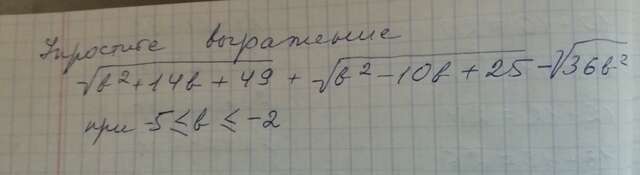 Упростите выражение
√b²+14b+49 + √b²-10b+25 - √36b²
при -5≤b≤-2